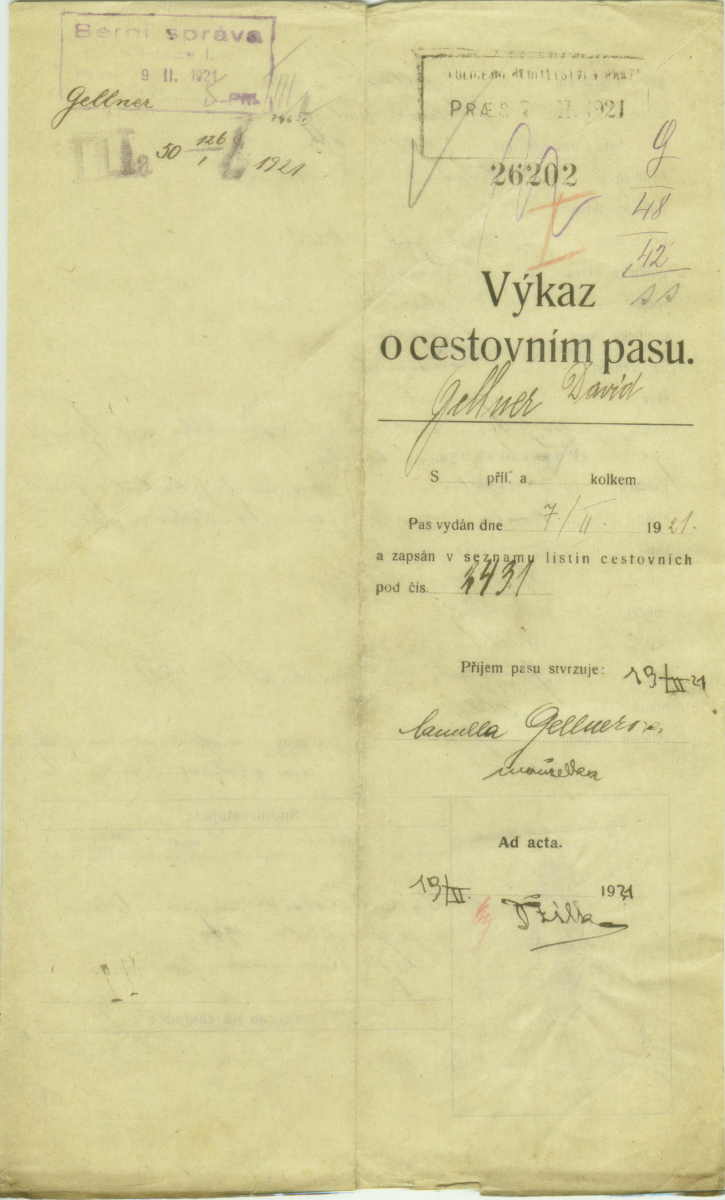 Berní správa
9 II. 1921
Gellner
30 126/1 1921
PRÆS 7 II 1921
26202
g
48
42
ss
Výkaz
o cestovním pasu.
Gellner David
S příl. a kolkem
Pas vydán dne 7/II. 1921.
a zapsán v seznamu listin cestovních
pod čís. 2431
Příjem pasu stvrzuje: 19/II 21
Camilla Gellnerova
manželka
Ad acta.
19/II. 1921